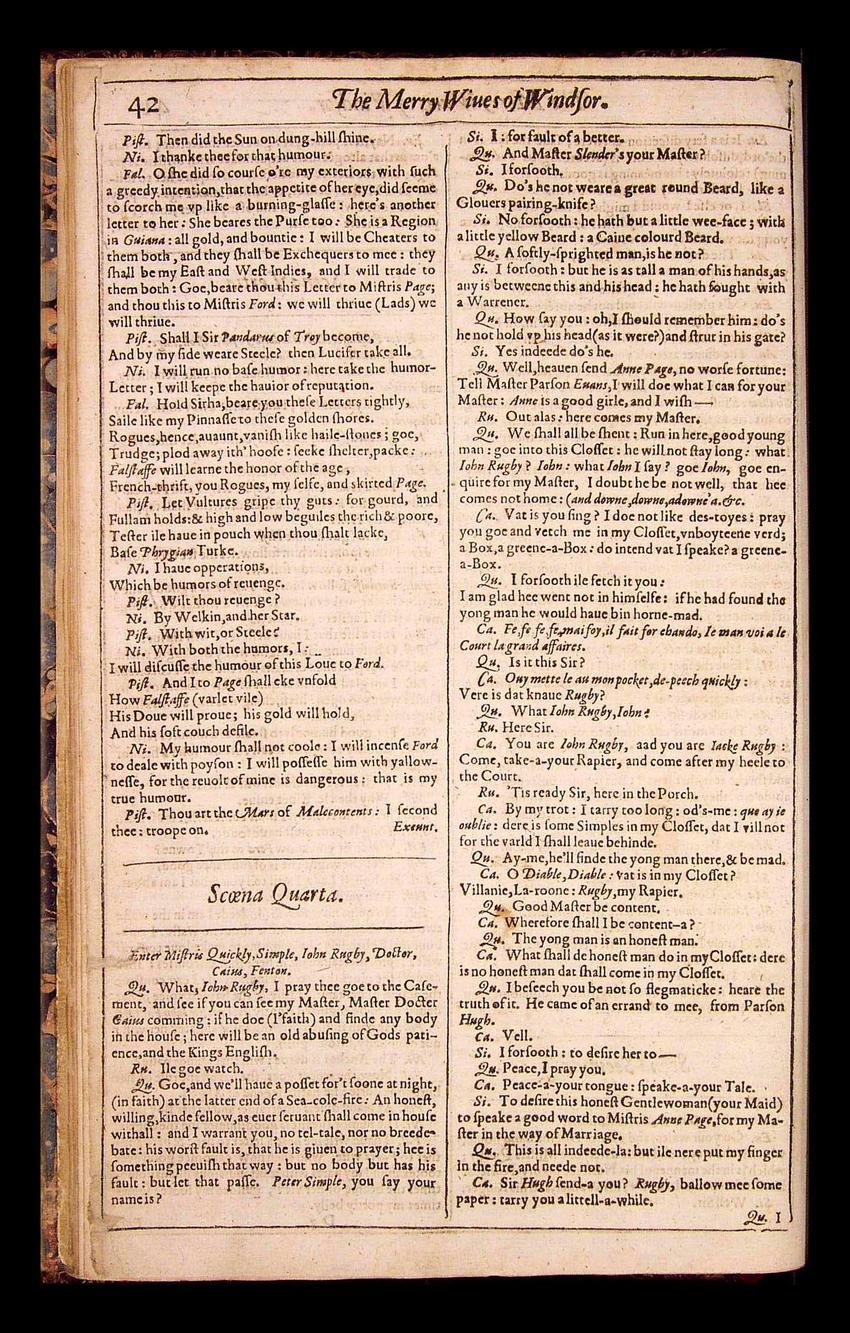 42
The Merry Wiues of Windſor.
Piſt. Then did the Sun on dung-hill ſhine.
Ni. I thanke thee for that humour.
Fal. O ſhe did ſo courſe o're my exteriors with ſuch
a greedy intention, that the appetite of her eye, did ſeeme
to ſcorch me vp like a burning-glaſſe: here's another
letter to her: She beares the Purſe too: She is a Region
in Guiana: all gold, and bountie: I will be Cheaters to
them both, and they ſhall be Exchequers to mee: they
ſhall be my Eaſt and Weſt Indies, and I will trade to
them both: Goe, beare thou this Letter to Miſtris Page;
and thou this to Miſtris Ford: we will thriue (Lads) we
will thriue.
Piſt. Shall I Sir Pandarus of Troy become,
And by my ſide weare Steele? then Lucifer take all.
Ni. I will run no baſe humor: here take the humor-
Letter; I will keepe the hauior of reputation.
Fal. Hold Sirha, beare you theſe Letters tightly,
Saile like my Pinnaſſe to theſe golden ſhores.
Rogues, hence, auaunt, vaniſh like haile-ſtones; goe,
Trudge; plod away ith' hoofe: ſeeke ſhelter, packe:
Falſtaffe will learne the honor of the age,
French-thrift, you Rogues, my ſelfe, and skirted Page.
Piſt. Let Vultures gripe thy guts: for gourd, and
Fullam holds: & high and low beguiles the rich & poore,
Teſter ile haue in pouch when thou ſhalt lacke,
Baſe Phrygian Turke.
Ni. I haue opperations,
Which be humors of reuenge.
Piſt. Wilt thou reuenge?
Ni. By Welkin, and her Star.
Piſt. With wit, or Steele?
Ni. With both the humors, I:
I will diſcuſſe the humour of this Loue to Ford.
Piſt. And I to Page ſhall eke vnfold
How Falſtaffe (varlet vile)
His Doue will proue; his gold will hold,
And his ſoft couch defile.
Ni. My humour ſhall not coole: I will incenſe Ford
to deale with poyſon: I will poſſeſſe him with yallow-
neſſe, for the reuolt of mine is dangerous: that is my
true humour.
Piſt. Thou art the Mars of Malecontents: I ſecond
thee: troope on. Exeunt.
Scœna Quarta.
Enter Miſtris Quickly, Simple, Iohn Rugby, Doctor,
Caius, Fenton.
Qu. What, Iohn Rugby, I pray thee goe to the Caſe-
ment, and ſee if you can ſee my Maſter, Maſter Docter
Caius comming: if he doe (I'faith) and finde any body
in the houſe; here will be an old abuſing of Gods pati-
ence, and the Kings Engliſh.
Ru. Ile goe watch.
Qu. Goe, and we'll haue a poſſet for't ſoone at night,
(in faith) at the latter end of a Sea-cole-fire: An honeſt,
willing, kinde fellow, as euer ſeruant ſhall come in houſe
withall: and I warrant you, no tel-tale, nor no breede-
bate: his worſt fault is, that he is giuen to prayer; hee is
ſomething peeuiſh that way: but no body but has his
fault: but let that paſſe. Peter Simple, you ſay your
name is?
Si. I: for fault of a better.
Qu. And Maſter Slender's your Maſter?
Si. I forſooth.
Qu. Do's he not weare a great round Beard, like a
Glouers pairing-knife?
Si. No forſooth: he hath but a little wee-face; with
a little yellow Beard: a Caine colourd Beard.
Qu. A ſoftly-ſprighted man, is he not?
Si. I forſooth: but he is as tall a man of his hands, as
any is betweene this and his head: he hath fought with
a Warrener.
Qu. How ſay you: oh, I ſhould remember him: do's
he not hold vp his head (as it were?) and ſtrut in his gate?
Si. Yes indeede do's he.
Qu. Well, heauen ſend Anne Page, no worſe fortune:
Tell Maſter Parſon Euans, I will doe what I can for your
Maſter: Anne is a good girle, and I wiſh—
Ru. Out alas: here comes my Maſter.
Qu. We ſhall all be ſhent: Run in here, good young
man: goe into this Cloſſet: he will not ſtay long: what
Iohn Rugby? Iohn: what Iohn I ſay? goe Iohn, goe en-
quire for my Maſter, I doubt he be not well, that hee
comes not home: (and downe, downe, adowne'a. &c.
Ca. Vat is you ſing? I doe not like des-toyes: pray
you goe and vetch me in my Cloſſet, vnboyteene verd;
a Box, a greene-a-Box: do intend vat I ſpeake? a greene-
a-Box.
Qu. I forſooth ile fetch it you:
I am glad hee went not in himſelfe: if he had found the
yong man he would haue bin horne-mad.
Ca. Fe, fe, fe, fe, mai foy, il fait for ehando, Ie man voi a le
Court la grand affaires.
Qu. Is it this Sir?
Ca. Ouy mette le au mon pocket, de-peech quickly:
Vere is dat knaue Rugby?
Qu. What Iohn Rugby, Iohn?
Ru. Here Sir.
Ca. You are Iohn Rugby, aad you are Iacke Rugby:
Come, take-a-your Rapier, and come after my heele to
the Court.
Ru. 'Tis ready Sir, here in the Porch.
Ca. By my trot: I tarry too long: od's-me: que ay ie
oublie: dere is ſome Simples in my Cloſſet, dat I vill not
for the varld I ſhall leaue behinde.
Qu. Ay-me, he'll finde the yong man there, & be mad.
Ca. O Diable, Diable: vat is in my Cloſſet?
Villanie, La-roone: Rugby, my Rapier.
Qu. Good Maſter be content.
Ca. Wherefore ſhall I be content-a?
Qu. The yong man is an honeſt man.
Ca. What ſhall de honeſt man do in my Cloſſet: dere
is no honeſt man dat ſhall come in my Cloſſet.
Qu. I beſeech you be not ſo flegmaticke: heare the
truth of it. He came of an errand to mee, from Parſon
Hugh.
Ca. Vell.
Si. I forſooth: to deſire her to—
Qu. Peace, I pray you.
Ca. Peace-a-your tongue: ſpeake-a-your Tale.
Si. To deſire this honeſt Gentlewoman (your Maid)
to ſpeake a good word to Miſtris Anne Page, for my Ma-
ſter in the way of Marriage.
Qu. This is all indeede-la: but ile nere put my finger
in the fire, and neede not.
Ca. Sir Hugh ſend-a you? Rugby, ballow mee ſome
paper: tarry you a littell-a-while.
Qu. I